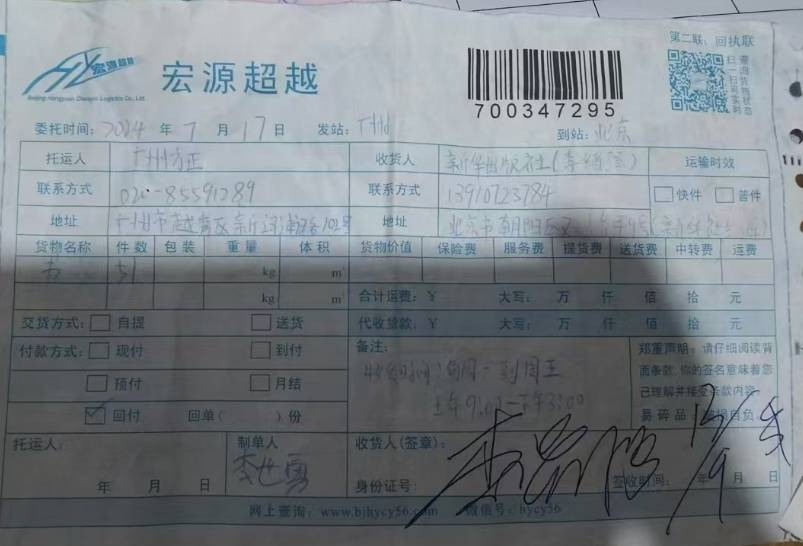 第二联：回执联
宏源超越
宏源超越
Beijing Hongyuan Chaoyue Logistics Co., Ltd.
700347295
查询货物状态
扫一扫实时
委托时间：2024 年 7 月 17 日 发站：广州 到站：北京
托运人 广州方正 收货人 运输时效
联系方式 020-85591289 联系方式 13910723784 快件 普件
地址 广州市越秀区 地址 北京市朝阳区
货物名称 件数 包装 重量 体积 货物价值 保险费 服务费 提货费 送货费 中转费 运费
书 51 kg m³
kg m³ 合计运费：￥ 大写： 万 仟 佰 拾 元
交货方式： 自提 送货 代收货款：￥ 大写： 万 仟 佰 拾 元
付款方式： 现付 到付 备注： 郑重声明：请仔细阅读背
面条款，你的签名意味着您
预付 月结 收货时间：每周一到周五 已理解并接受条款内容。
回付 回单( )份 上午9:00-下午3:00 易碎品 破损自负
托运人： 制单人 收货人(签章)：
李世勇
年 月 日 身份证号： 签收时间： 年 月 日
网上查询：www.bjhycy56.com 微信号：hycy56